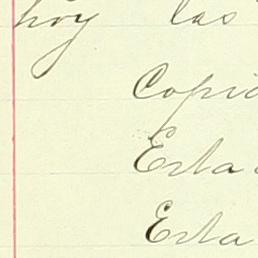 hoy las
Copia
Esta
Esta